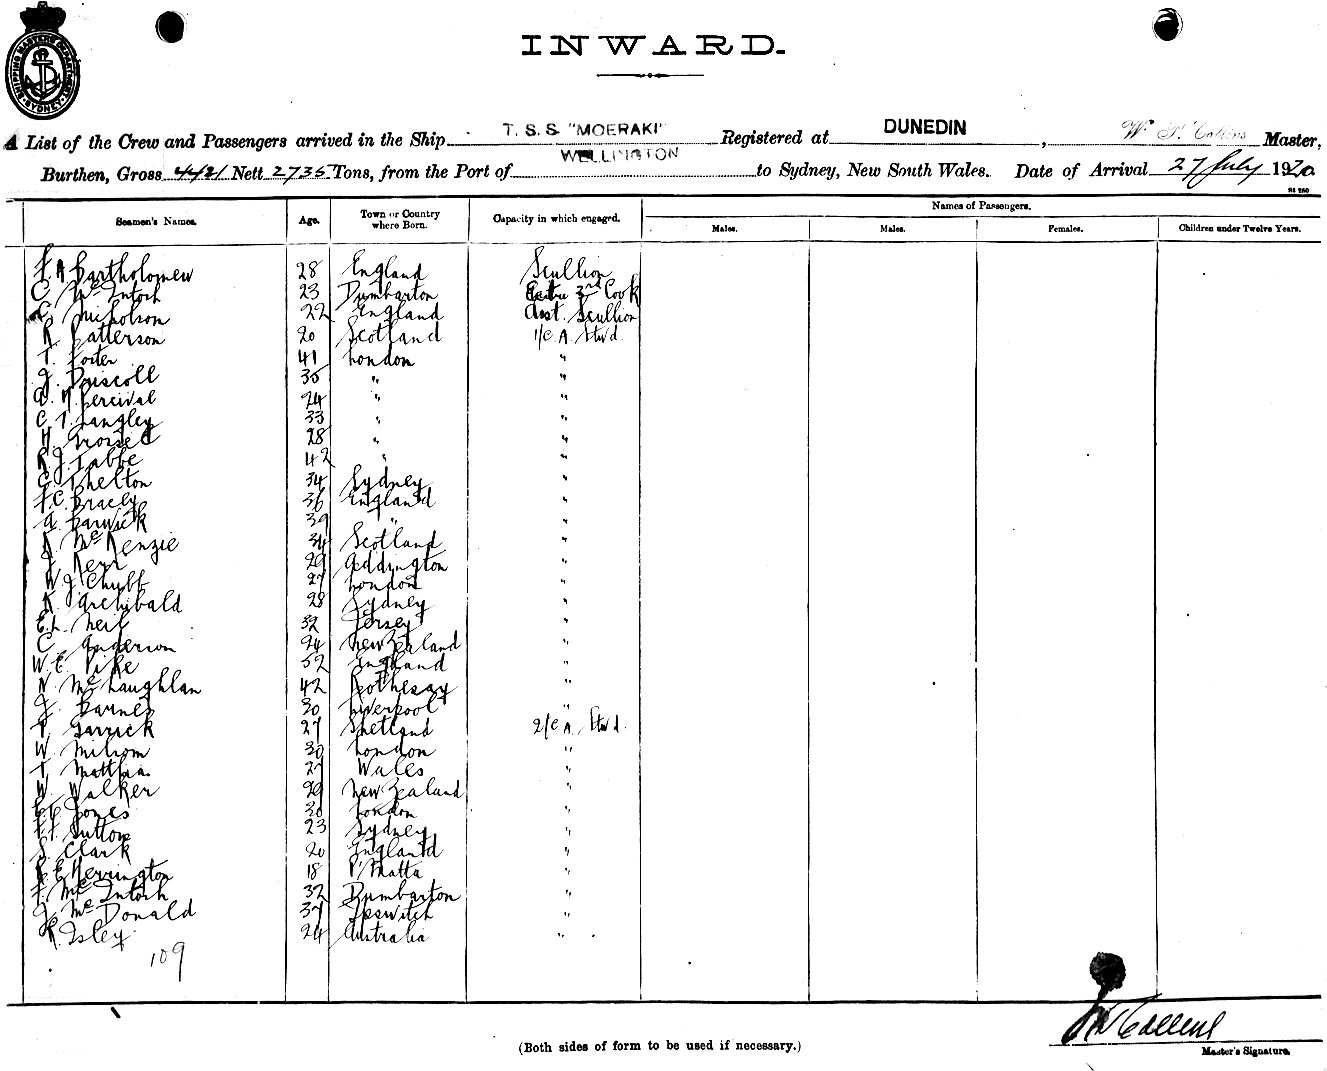 SHIPPING MASTERS DEPARTMENT SYDNEY
INWARD.
A List of the Crew and Passengers arrived in the Ship T. S. S. "MOERAKI" Registered at DUNEDIN, W. Collins Master,
Burthen, Gross 4421 Nett 2735 Tons, from the Port of WELLINGTON to Sydney, New South Wales. Date of Arrival 27 July 1920
Names of Passengers.
Seamen's Names. Age. Town or Country where Born. Capacity in which engaged. Males. Males. Females. Children under Twelve Years.
F. A Bartholomew 28 England Scullion
C. McIntosh 23 Dumbarton Extra 3rd Cook
Nicholson 22 England Asst. Scullion
R Patterson 20 Scotland 1/C A. Stwd
T. Foster 41 London "
J. Driscoll 35 " "
A. H Percival 24 " "
C. T. Langley 33 " "
H. 28 " "
R J. Tabbe 42 " "
C. Thelton 34 Sydney "
F. C. Bracey 36 England "
A Barwick 39 " "
R McKenzie 34 Scotland "
J Kerr 29 Addington "
W J Chubb 27 London "
R Archibald 28 Sydney "
E. L. Neil 32 Jersey "
C. Anderson 24 New Zealand "
W. E. Pike 52 England "
N. McLaughlan 42 Rothesay "
J. Barnes 30 Liverpool "
T. Garrick 27 Shetland 2/C A. Stwd
W. Milsom 30 London "
T. 27 Wales "
W Walker 29 New Zealand "
Jones 30 London "
Sutton 23 Sydney "
S. Clark 20 England "
R E Herrington 18 P'Matta "
F. McIntosh 32 Dumbarton "
J McDonald 37 Ipswitch "
R. Isley 24 Australia "
109
(Both sides of form to be used if necessary.)
Collins
Master's Signature.